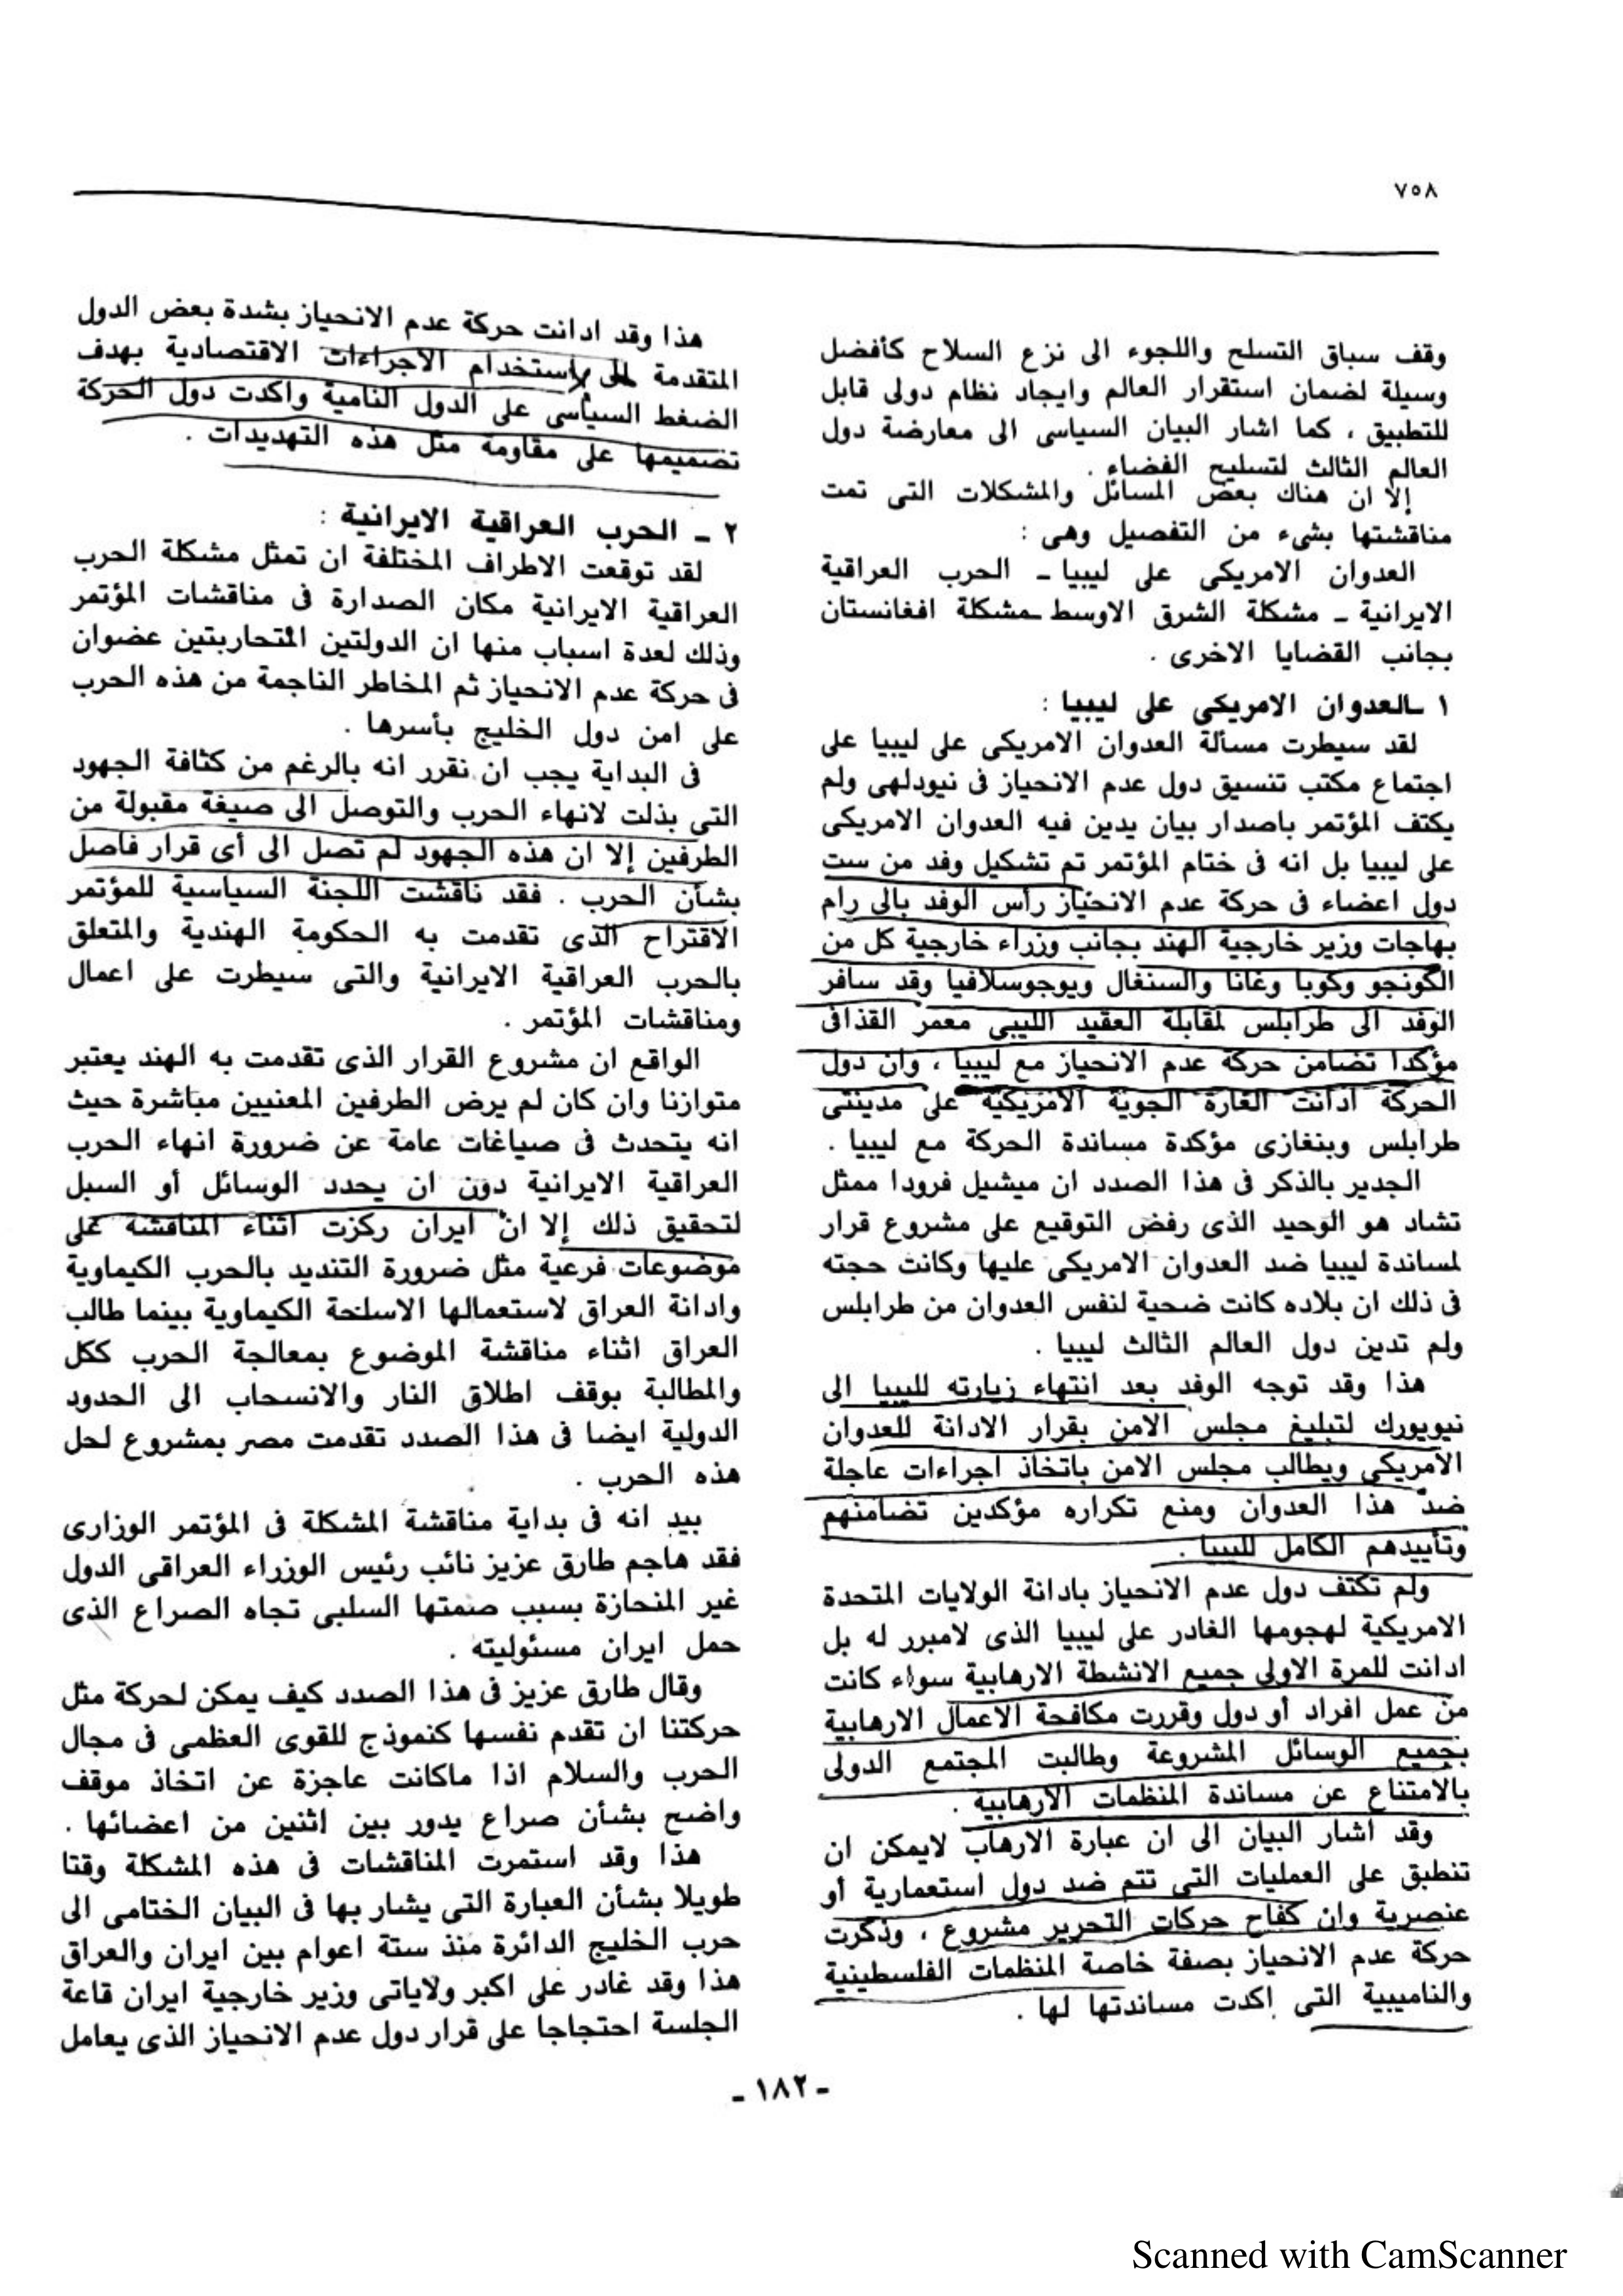 ٧٥٨
وقف سباق التسلح واللجوء الى نزع السلاح كأفضل
وسيلة لضمان استقرار العالم وايجاد نظام دولى قابل
للتطبيق ، كما اشار البيان السياسى الى معارضة دول
العالم الثالث لتسليح الفضاء .
إلا ان هناك بعض المسائل والمشكلات التى تمت
مناقشتها بشىء من التفصيل وهى :
العدوان الامريكى على ليبيا ـ الحرب العراقية
الايرانية ـ مشكلة الشرق الاوسط ـ مشكلة افغانستان
بجانب القضايا الاخرى .
١ ـ العدوان الامريكى على ليبيا :
لقد سيطرت مسألة العدوان الامريكى على ليبيا على
اجتماع مكتب تنسيق دول عدم الانحياز فى نيودلهى ولم
يكتف المؤتمر باصدار بيان يدين فيه العدوان الامريكى
على ليبيا بل انه فى ختام المؤتمر تم تشكيل وفد من ست
دول اعضاء فى حركة عدم الانحياز رأس الوفد بالى رام
بهاجات وزير خارجية الهند بجانب وزراء خارجية كل من
الكونجو وكوبا وغانا والسنغال ويوجوسلافيا وقد سافر
الوفد الى طرابلس لمقابلة العقيد الليبى معمر القذافى
مؤكدا تضامن حركة عدم الانحياز مع ليبيا ، وان دول
الحركة ادانت الغارة الجوية الامريكية على مدينتى
طرابلس وبنغازى مؤكدة مساندة الحركة مع ليبيا .
الجدير بالذكر فى هذا الصدد ان ميشيل فرودا ممثل
تشاد هو الوحيد الذى رفض التوقيع على مشروع قرار
لمساندة ليبيا ضد العدوان الامريكى عليها وكانت حجته
فى ذلك ان بلاده كانت ضحية لنفس العدوان من طرابلس
ولم تدين دول العالم الثالث ليبيا .
هذا وقد توجه الوفد بعد انتهاء زيارته لليبيا الى
نيويورك لتبليغ مجلس الامن بقرار الادانة للعدوان
الامريكى ويطالب مجلس الامن باتخاذ اجراءات عاجلة
ضد هذا العدوان ومنع تكراره مؤكدين تضامنهم
وتأييدهم الكامل لليبيا .
ولم تكتف دول عدم الانحياز بادانة الولايات المتحدة
الامريكية لهجومها الغادر على ليبيا الذى لامبرر له بل
ادانت للمرة الاولى جميع الانشطة الارهابية سواء كانت
من عمل افراد أو دول وقررت مكافحة الاعمال الارهابية
بجميع الوسائل المشروعة وطالبت المجتمع الدولى
بالامتناع عن مساندة المنظمات الارهابية .
وقد اشار البيان الى ان عبارة الارهاب لايمكن ان
تنطبق على العمليات التى تتم ضد دول استعمارية أو
عنصرية وان كفاح حركات التحرير مشروع ، وذكرت
حركة عدم الانحياز بصفة خاصة المنظمات الفلسطينية
والناميبية التى اكدت مساندتها لها .
هذا وقد ادانت حركة عدم الانحياز بشدة بعض الدول
المتقدمة لاستخدام الاجراءات الاقتصادية بهدف
الضغط السياسى على الدول النامية واكدت دول الحركة
تصميمها على مقاومة مثل هذه التهديدات .
٢ ـ الحرب العراقية الايرانية :
لقد توقعت الاطراف المختلفة ان تمثل مشكلة الحرب
العراقية الايرانية مكان الصدارة فى مناقشات المؤتمر
وذلك لعدة اسباب منها ان الدولتين المتحاربتين عضوان
فى حركة عدم الانحياز ثم المخاطر الناجمة من هذه الحرب
على امن دول الخليج بأسرها .
فى البداية يجب ان نقرر انه بالرغم من كثافة الجهود
التى بذلت لانهاء الحرب والتوصل الى صيغة مقبولة من
الطرفين إلا ان هذه الجهود لم تصل الى أى قرار فاصل
بشأن الحرب . فقد ناقشت اللجنة السياسية للمؤتمر
الاقتراح الذى تقدمت به الحكومة الهندية والمتعلق
بالحرب العراقية الايرانية والتى سيطرت على اعمال
ومناقشات المؤتمر .
الواقع ان مشروع القرار الذى تقدمت به الهند يعتبر
متوازنا وان كان لم يرض الطرفين المعنيين مباشرة حيث
انه يتحدث فى صياغات عامة عن ضرورة انهاء الحرب
العراقية الايرانية دون ان يحدد الوسائل أو السبل
لتحقيق ذلك إلا ان ايران ركزت اثناء المناقشة على
موضوعات فرعية مثل ضرورة التنديد بالحرب الكيماوية
وادانة العراق لاستعمالها الاسلحة الكيماوية بينما طالب
العراق اثناء مناقشة الموضوع بمعالجة الحرب ككل
والمطالبة بوقف اطلاق النار والانسحاب الى الحدود
الدولية ايضا فى هذا الصدد تقدمت مصر بمشروع لحل
هذه الحرب .
بيد انه فى بداية مناقشة المشكلة فى المؤتمر الوزارى
فقد هاجم طارق عزيز نائب رئيس الوزراء العراقى الدول
غير المنحازة بسبب صمتها السلبى تجاه الصراع الذى
حمل ايران مسئوليته .
وقال طارق عزيز فى هذا الصدد كيف يمكن لحركة مثل
حركتنا ان تقدم نفسها كنموذج للقوى العظمى فى مجال
الحرب والسلام اذا ماكانت عاجزة عن اتخاذ موقف
واضح بشأن صراع يدور بين اثنين من اعضائها .
هذا وقد استمرت المناقشات فى هذه المشكلة وقتا
طويلا بشأن العبارة التى يشار بها فى البيان الختامى الى
حرب الخليج الدائرة منذ ستة اعوام بين ايران والعراق
هذا وقد غادر على اكبر ولاياتى وزير خارجية ايران قاعة
الجلسة احتجاجا على قرار دول عدم الانحياز الذى يعامل
ـ ١٨٢ ـ
Scanned with CamScanner